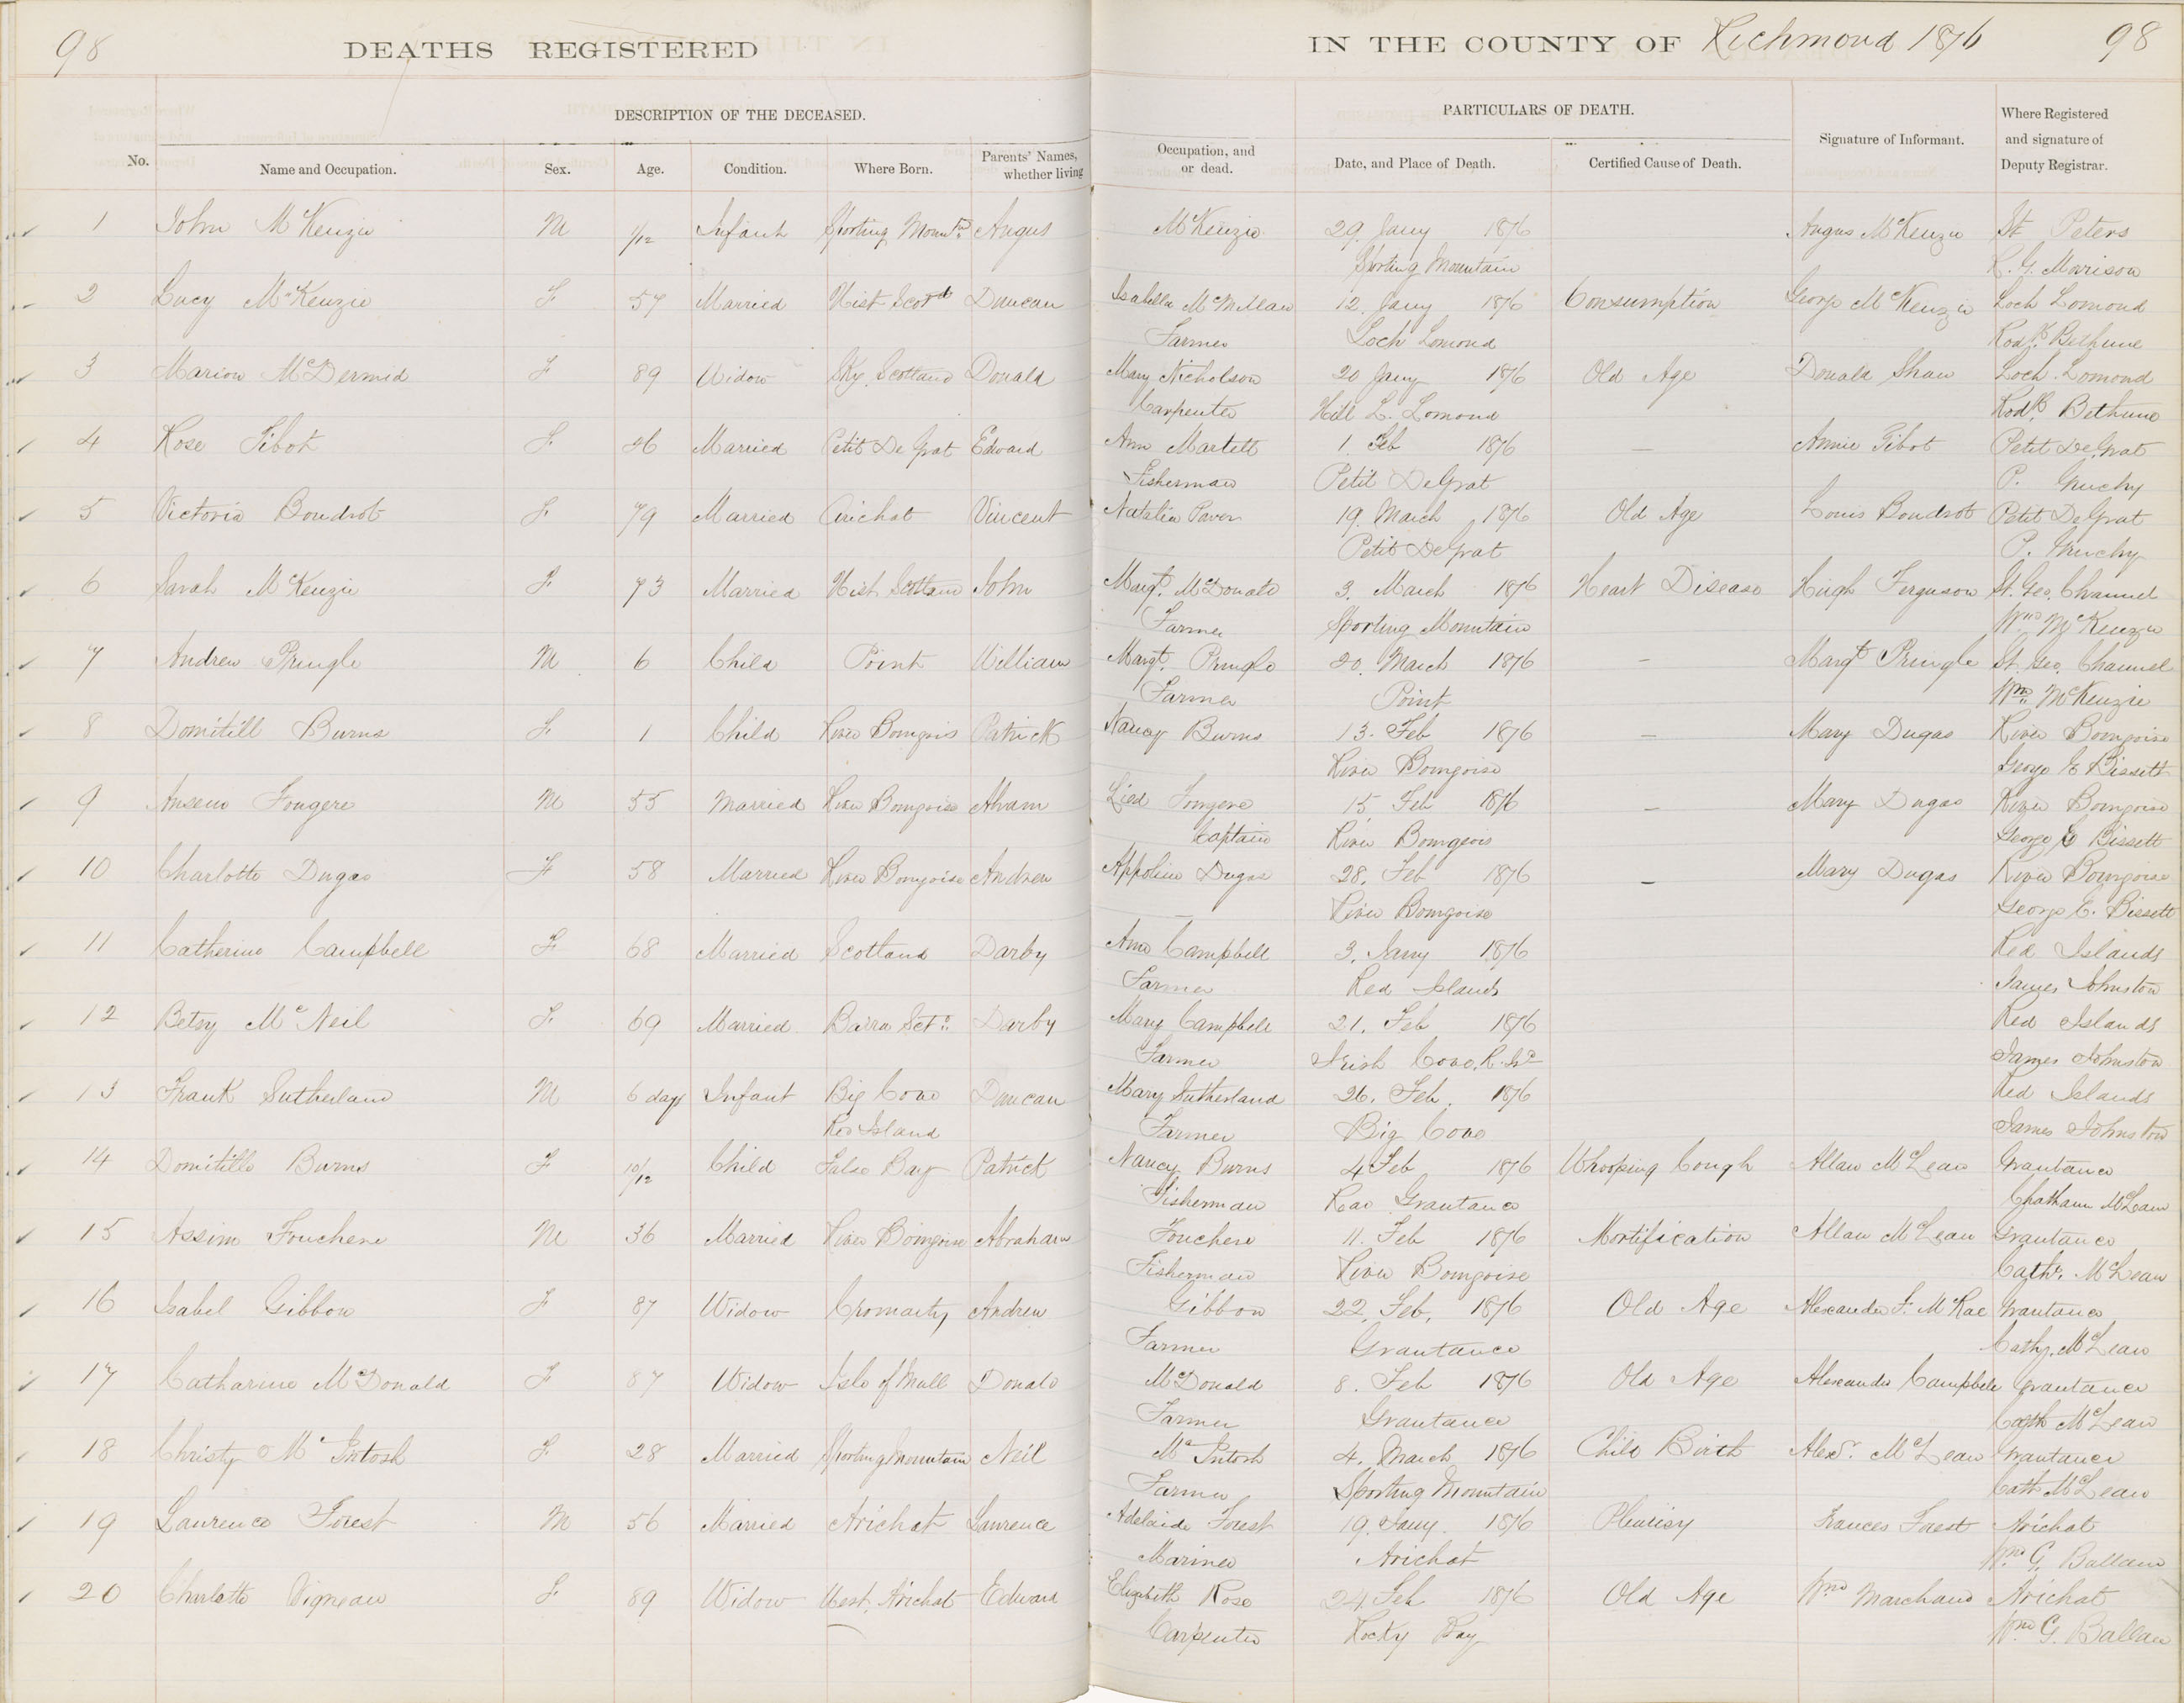 98 DEATHS REGISTERED IN THE COUNTY OF Richmond 1876 98
DESCRIPTION OF THE DECEASED. PARTICULARS OF DEATH.
No. Name and Occupation. Sex. Age. Condition. Where Born. Parents' Names, whether living Occupation, and or dead. Date, and Place of Death. Certified Cause of Death. Signature of Informant. Where Registered and signature of Deputy Registrar.
1 John McKenzie M 1/12 Infant Sporting Mountn. Angus McKenzie 29. Jany 1876 Angus McKenzie St Peters
Sporting Mountain R. G. Morison
2 Lucy McKenzie F 57 Married Uist Scotd Duncan Isabella McMillan 12. Jany 1876 Consumption George McKenzie Loch Lomond
Farmer Loch Lomond Rodk. Bethune
3 Marion McDermid F 89 Widow Sky. Scotland Donald Mary Nicholson 20 Jany 1876 Old Age Donald Shaw Loch Lomond
Carpenter Hill L. Lomond Rodk. Bethune
4 Rose Tibot F 46 Married Petit De Grat Edward Ann Martell 1. Feb 1876 — Annie Tibot Petit De Grat
Fisherman Petit DeGrat P. Gruchy
5 Victoria Boudrot F. 79 Married Arichat Vincent Natalia Paven 19. March 1876 Old Age Louis Boudrot Petit DeGrat
Petit DeGrat P. Gruchy
6 Sarah McKenzie F 73 Married Uist Scotland John Margt. McDonald 3. March 1876 Heart Disease Hugh Ferguson St. Geo. Channel
Farmer Sporting Mountain Wm McKenzie
7 Andrew Pringle M 6 Child Point William Margt. Pringle 20. March 1876 — Margt Pringle St. Geo. Channel
Farmer Point Wm. McKenzie
8 Domitill Burns F. 1 Child River Bourgois Patrick Nancy Burns 13. Feb 1876 — Mary Dugas River Bourgoise
River Bourgoise George E Bissett
9 Anseno Fougere M 55 Married River Bourgoise Abram Lied Fougere 15. Feb 1876 — Mary Dugas River Bourgoise
Captain River Bourgeois George E Bissett
10 Charlotte Dugas F 58 Married River Bourgoise Andrew Appoline Dugas 28. Feb 1876 — Mary Dugas River Bourgoise
— River Bourgoise George E. Bissett
11 Catherine Campbell F 68 Married Scotland Darby Ann Campbell 3. Jany 1876 Red Islands
Farmer Red Islands James Johnston
12 Betsy McNeil F. 69 Married Barra Sct. Darby Mary Campbell 21. Feb 1876 Red Islands
Farmer Irish Cove, R. Isd James Johnston
13 Frank Sutherland M 6 days Infant Big Cove Duncan Mary Sutherland 26. Feb. 1876 Red Islands
Red Island Farmer Big Cove James Johnston
14 Domitille Burns F 10/12 Child False Bay Patrick Nancy Burns 4 Feb 1876 Whooping Cough Allan McLean Grantance
Fisherman Grantance McLean
15 Assim Fouchere M 36 Married River Bourgoise Abraham Fouchere 11. Feb 1876 Mortification Allan McLean Grantance
Fisherman River Bourgoise Cath. McLean
16 Isabel Gibbon F 87 Widow Cromarty Andrew Gibbon 22. Feb. 1876 Old Age Alexander F. McRae Grantance
Farmer Grantance Cath. McLean
17 Catharine McDonald F 87 Widow Isle of Mull Donald McDonald 8. Feb 1876 Old Age Alexander Campbell Grantance
Farmer Grantance Cath McLean
18 Christy McIntosh F. 28 Married Sporting Mountain Neil McIntosh 4. March 1876 Child Birth Alexr. McLean Grantance
Farmer Sporting Mountain Cath McLean
19 Laurence Forest M 56 Married Arichat Laurence Adelaide Forest 19. Jany. 1876 Pleurisy Frances Forest Arichat
Mariner Arichat Wm G. Ballam
20 Charlotte Vigneau F 89 Widow West. Arichat Edward Elizabeth Rose 24 Feb 1876 Old Age Wm Marchand Arichat
Carpenter Rocky Bay Wm G. Ballam